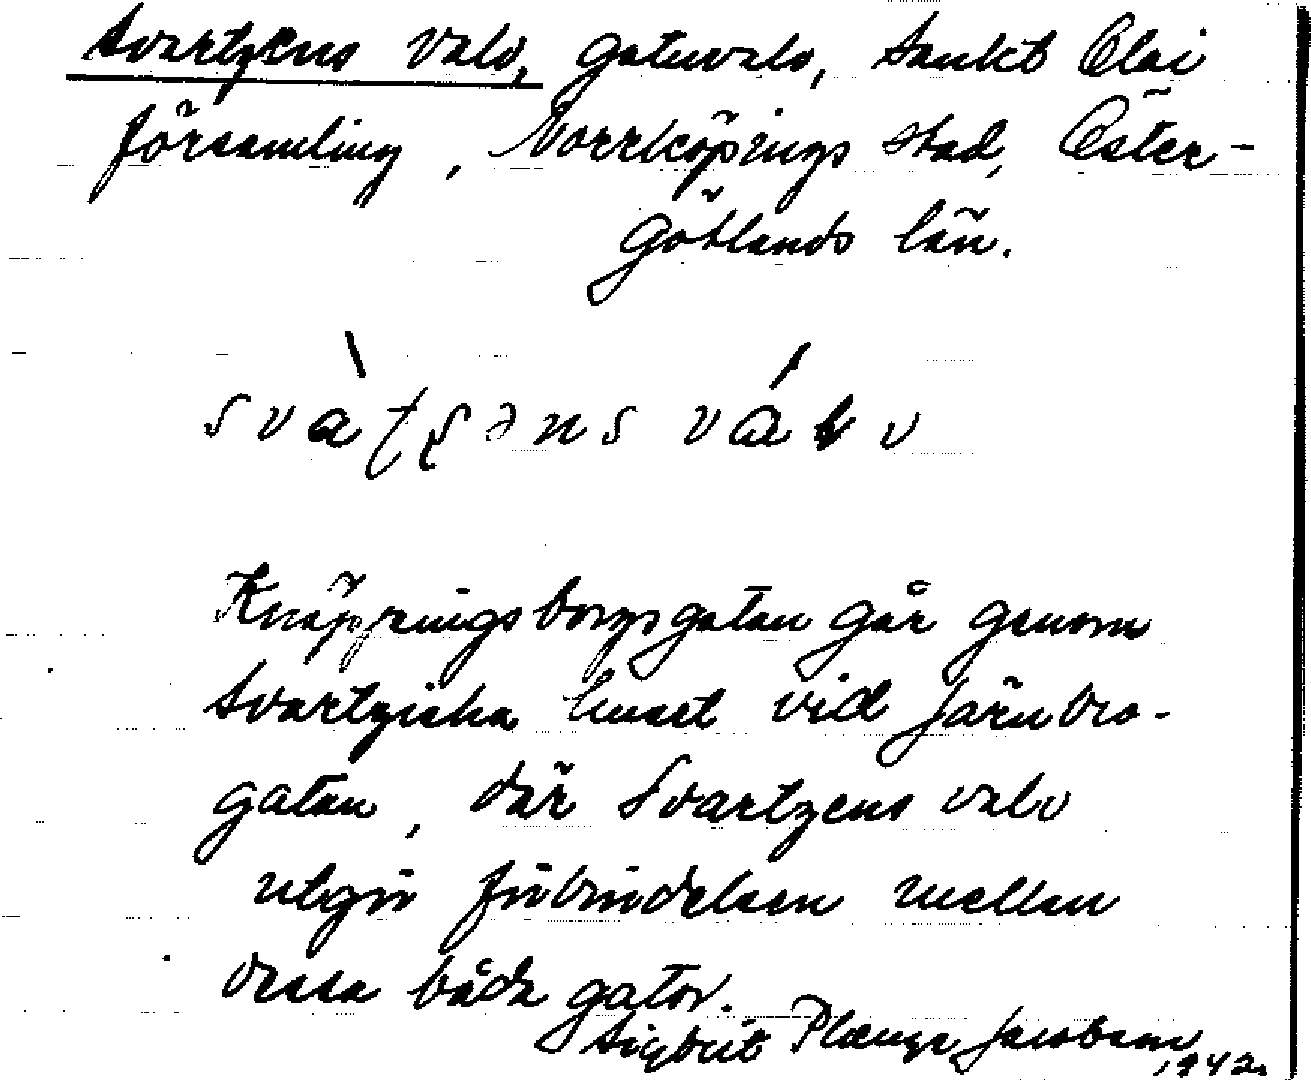 Svartzens valv, gatuvalv, Sankt Olai
församling, Norrköpings stad, Öster-
götlands län.
Knäppingsborgsgatan går genom
Svartziska huset vid Järnbro-
gatan, där Svartzens valv
utgör förbindelsen mellan
dessa båda gator.
Sigbrit Plænge Jacobson
1942.